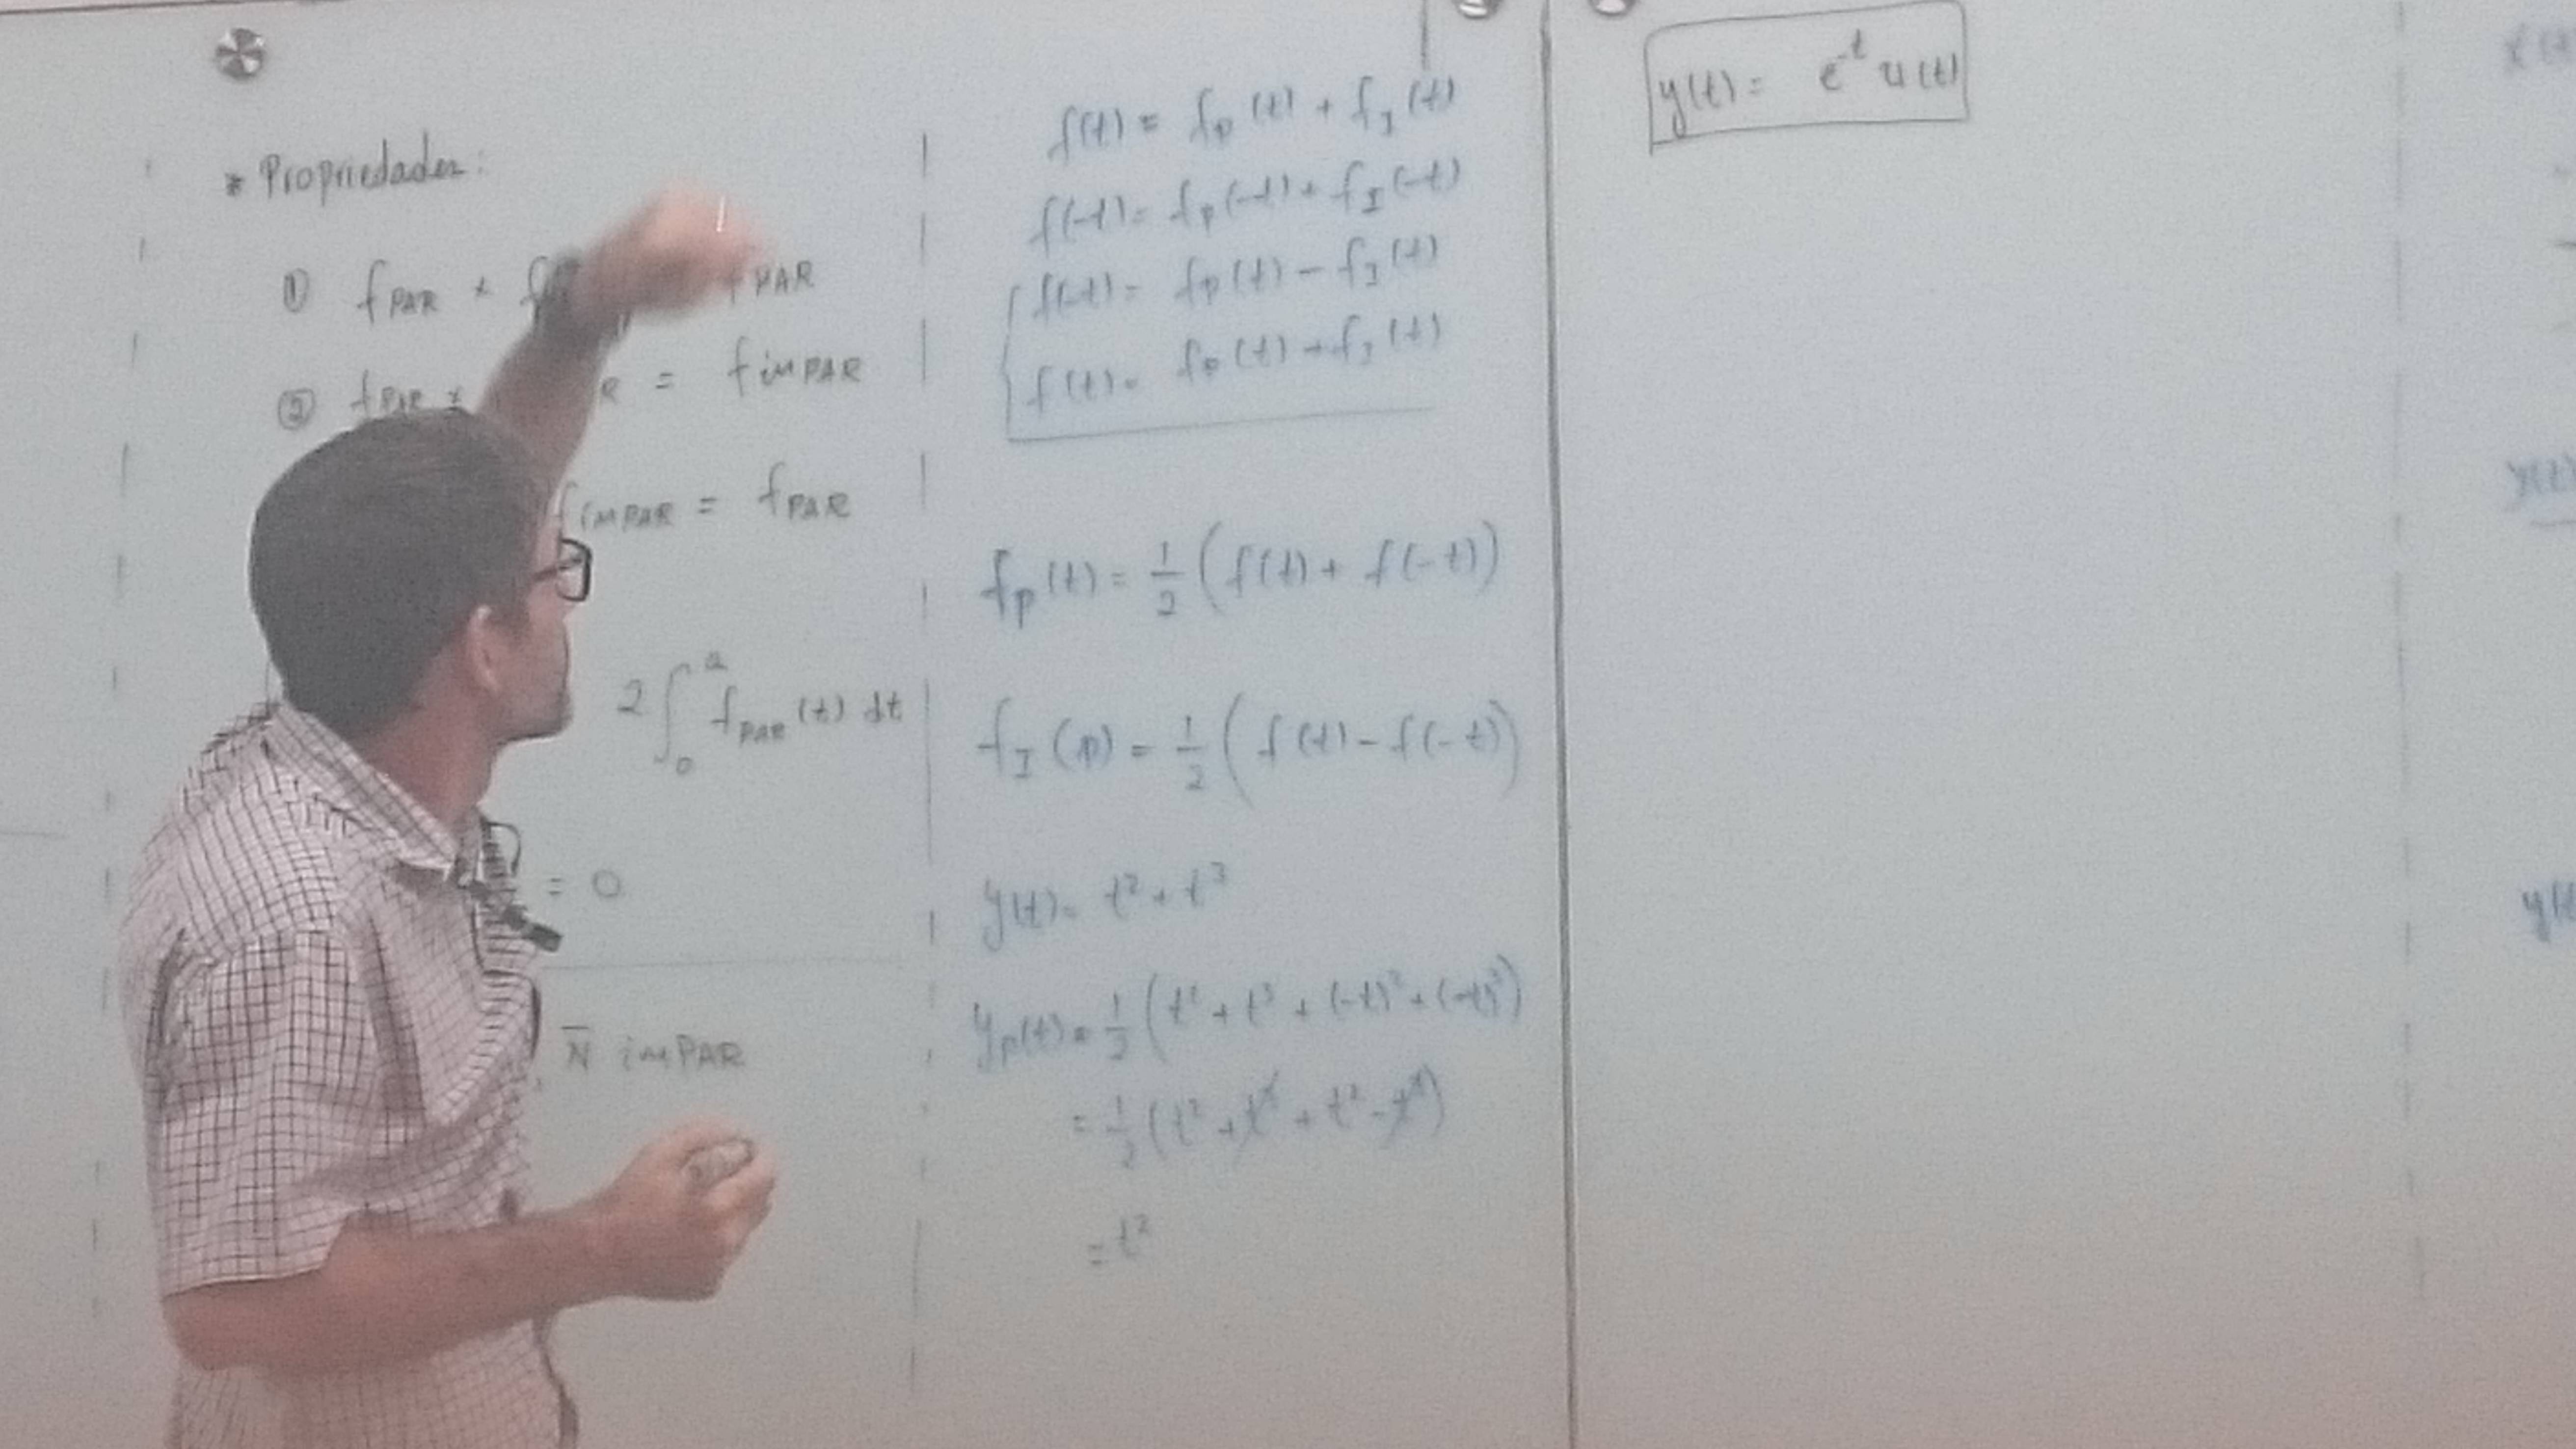 * Propriedades:
① fPAR × f PAR
② fPAR × R = fimPAR
fimPAR = fPAR
2∫₀ᵃ fPAR (t) dt
= 0
N̄ imPAR
f(t) = fp(t) + fI(t)
f(-t) = fp(-t) + fI(-t)
f(-t) = fp(t) - fI(t)
f(t) = fp(t) + fI(t)
fp(t) = 1/2 (f(t) + f(-t))
fI() = 1/2 (f(t) - f(-t))
y(t) = t² + t³
yp(t) = 1/2 (t² + t³ + (-t)² + (-t)³)
= 1/2 (t² + t³ + t² - t³)
= t²
y(t) = e^-t u(t)